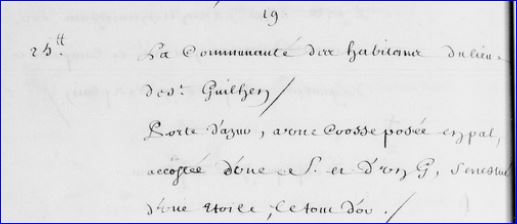 19
25 ₶. La Communauté des habitans du lieu
de St. Guilhen /
Porte d'azur, a une Crosse posée en pal,
accostée d'une S. et d'un G, senestré
d'une Etoile, le tout d'or. /